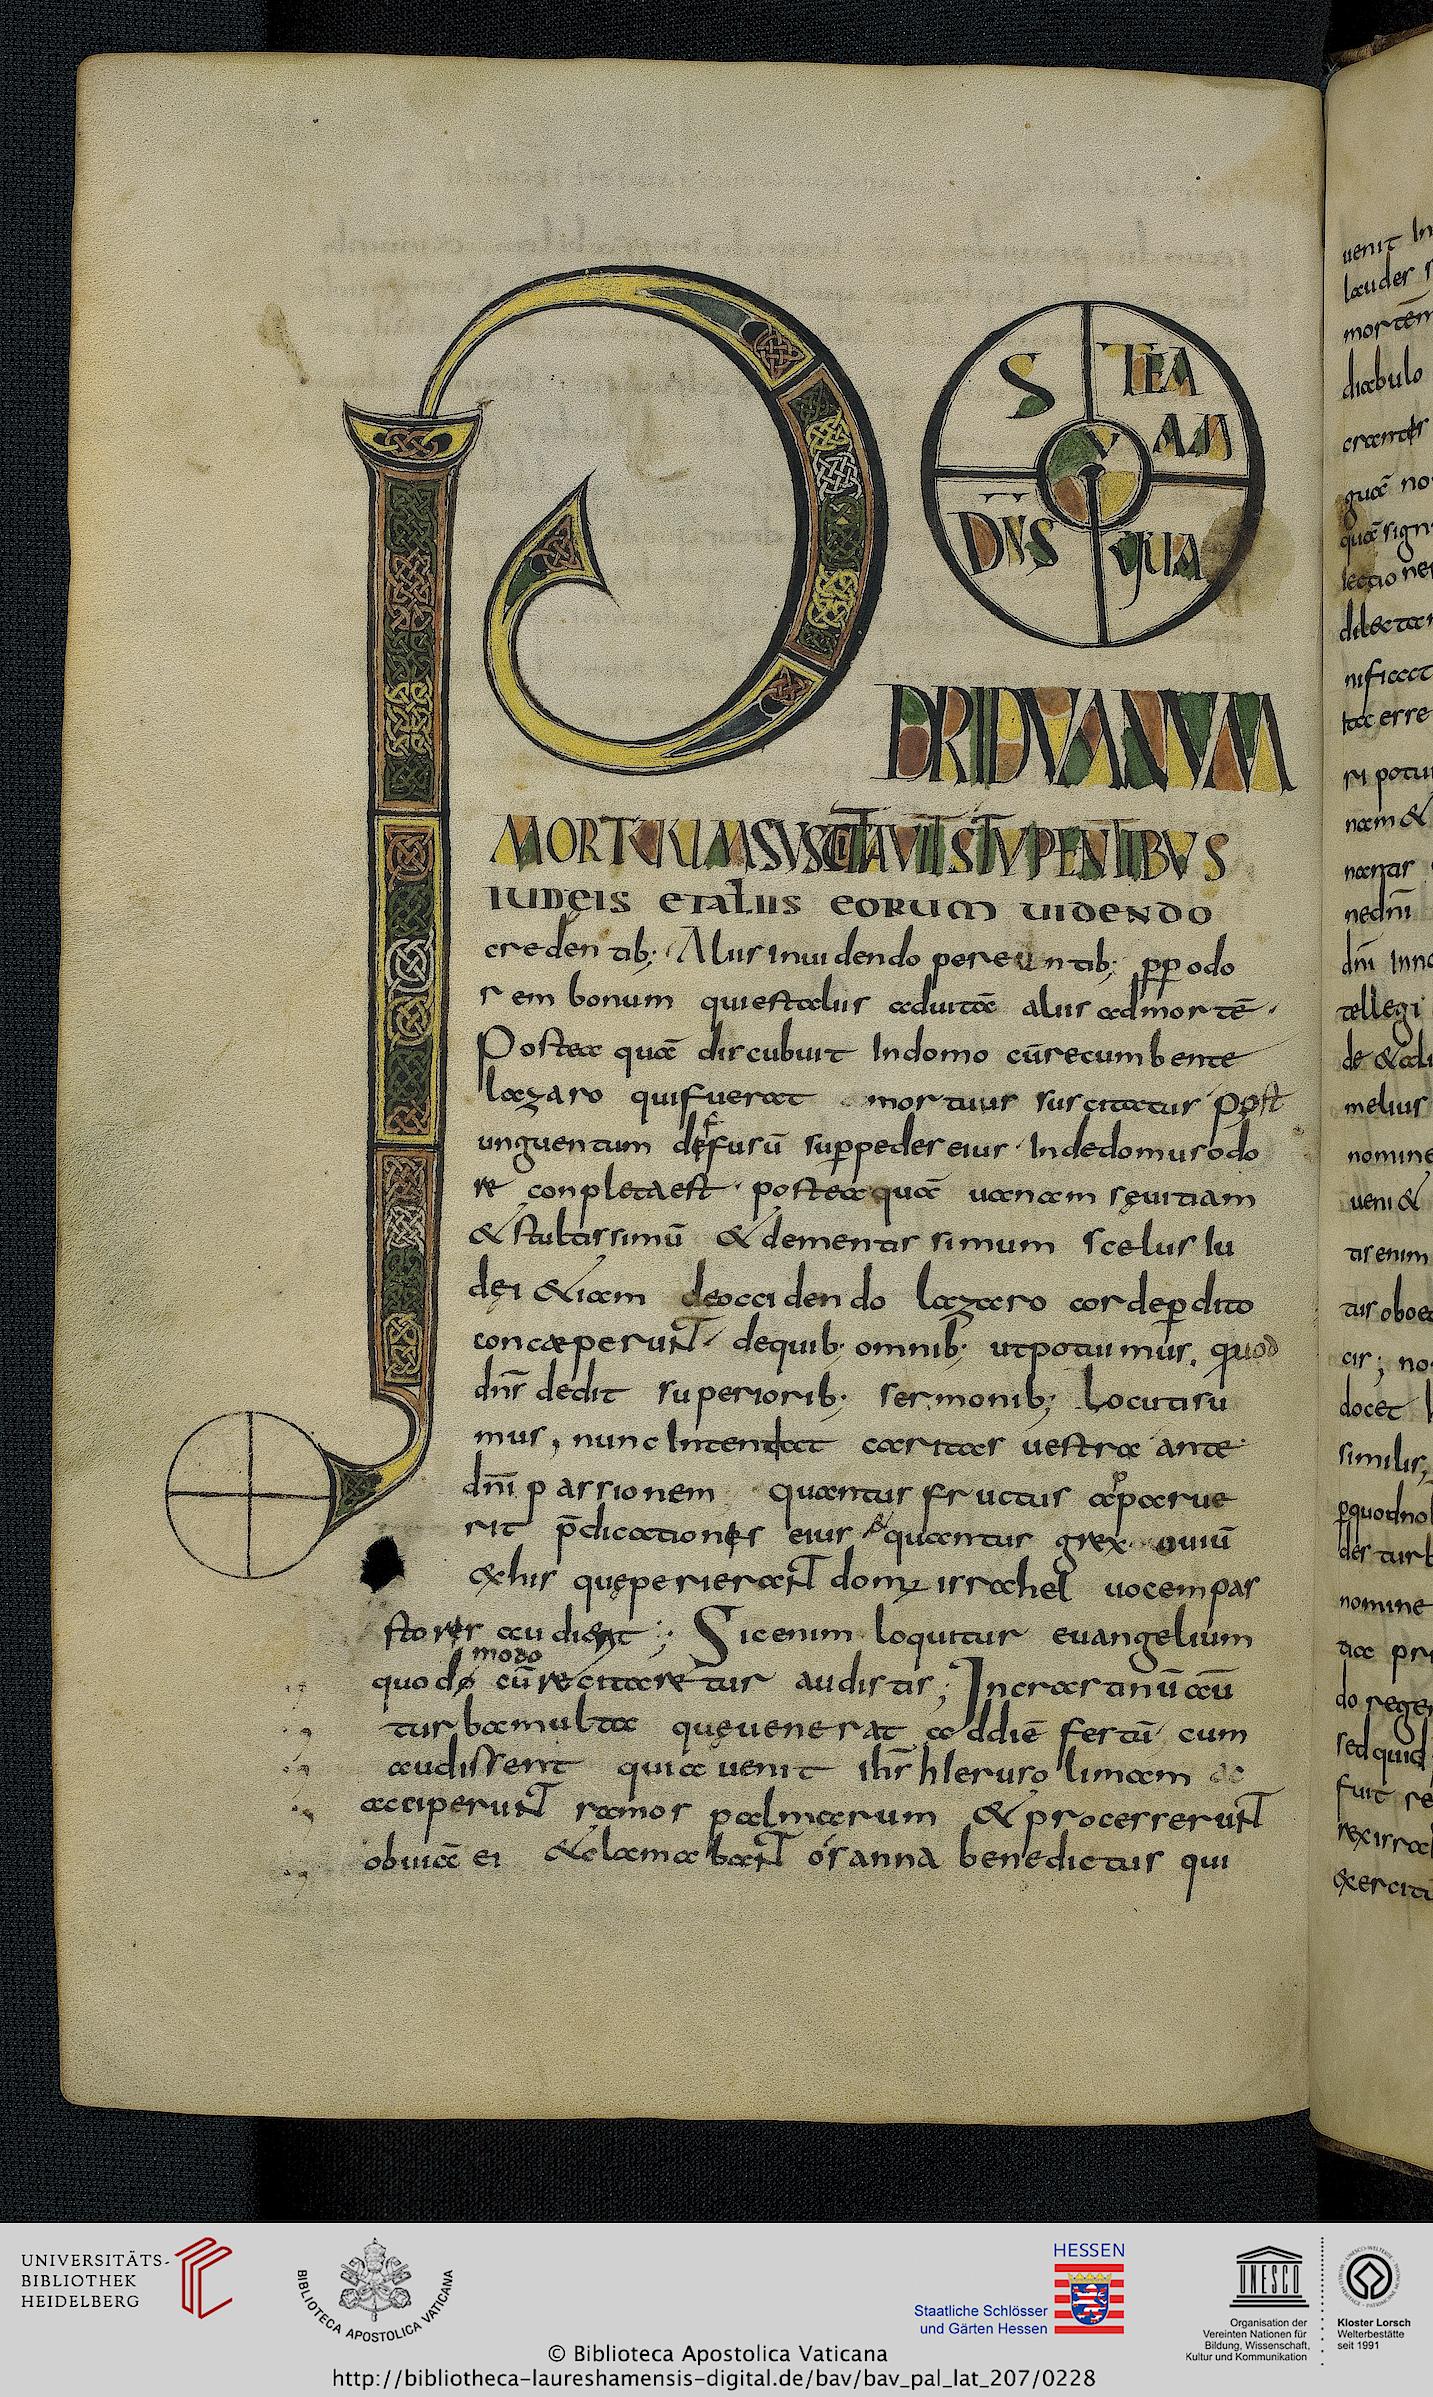 P
O
S
TEAM
AM
DN̅S
QUA
DRIDVANVM
MORTUUM SUSCITAVIT STVPENTIBVS
IUDĘIS ET ALIIS EORUM VIDENDO
credentib; Aliis inuidendo pereuntib; ꝓpodo
rem bonum qui est aliis ad uitā aliis ad mortē.
Postea quā discubuit In domo cū recumbente
lazaro qui fuerat mortuus suscitatus post
unguentum defusū sup pedes eius. Inde domus odo
re conpleta est. postea quā uanam sęuitiam
& stultissimū & dementissimum scelus Iu
dęi &iam de occidendo lazaro corde pdito
concæperunt. de quib; omnib; ut potuimus, quod
dn̅s dedit superiorib; sermonib; locuti su
mus, nunc Intendat caritas uestra ante
dn̅i passionem quantus fructus apparue
rit p̄dicationes eius & quantus grex ouiū
ex his quę perierant domꝰ israhel uocem pas
tores audient; Sic enim loquitur euangelium
modo
quod cū recitaretur audistis; In crastinū aū
turba multa quę uenerat ad diē festū cum
audissent quia uenit ihs̅ hIerurolimam ac
acciperunt ramos palmarum & processerunt
obuiā ei & clamabant osanna benedictus qui
uenit In
mortem
diabulo
ri potui
nam &
tellegi
melius
nomine
ueni &
docet
similis
nomine
do rege
sed quid
fuit re
UNIVERSITÄTS-
BIBLIOTHEK
HEIDELBERG
BIBLIOTECA APOSTOLICA VATICANA
HESSEN
Staatliche Schlösser
und Gärten Hessen
UNESCO
Organisation der
Vereinten Nationen für
Bildung, Wissenschaft,
Kultur und Kommunikation
Kloster Lorsch
Welterbestätte
seit 1991
© Biblioteca Apostolica Vaticana
http://bibliotheca-laureshamensis-digital.de/bav/bav_pal_lat_207/0228